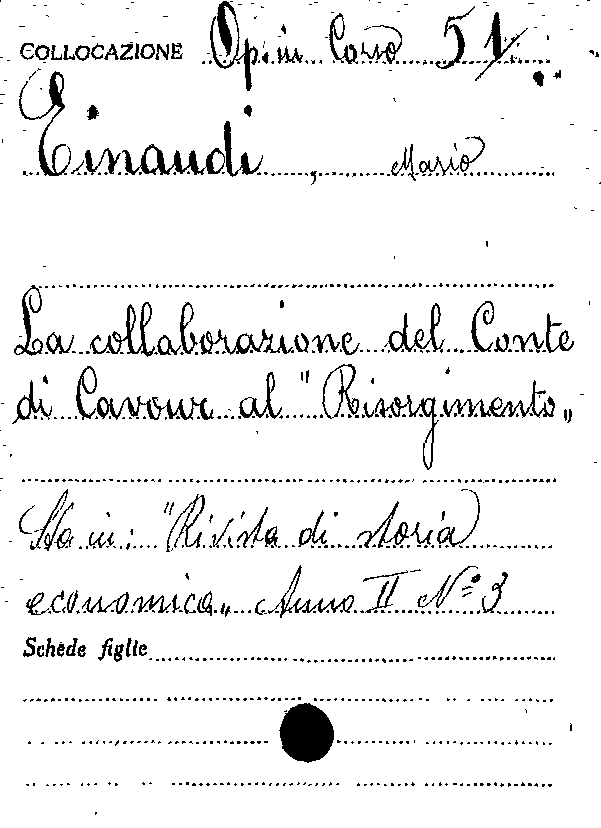 COLLOCAZIONE Op. in Corso 51
Einaudi, Mario
La collaborazione del Conte
di Cavour al "Risorgimento„
Sta in: "Rivista di storia
economica„ Anno II Nº 3
Schede figlie